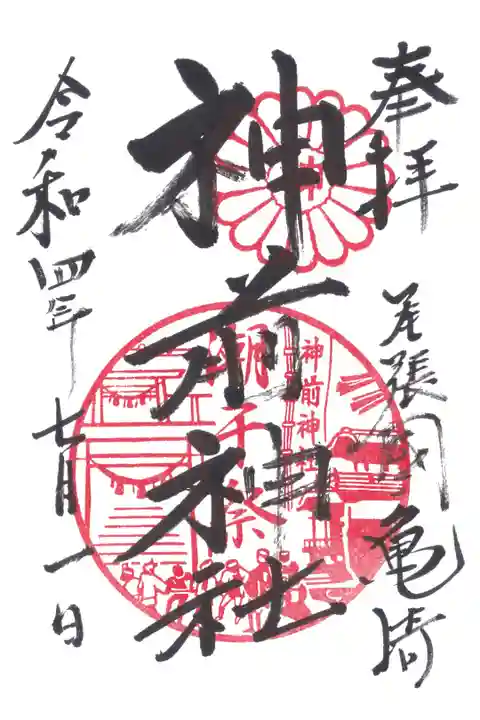 奉拝
尾張國亀崎
神前神社
令和四年
七月一日
神前神社
潮干祭